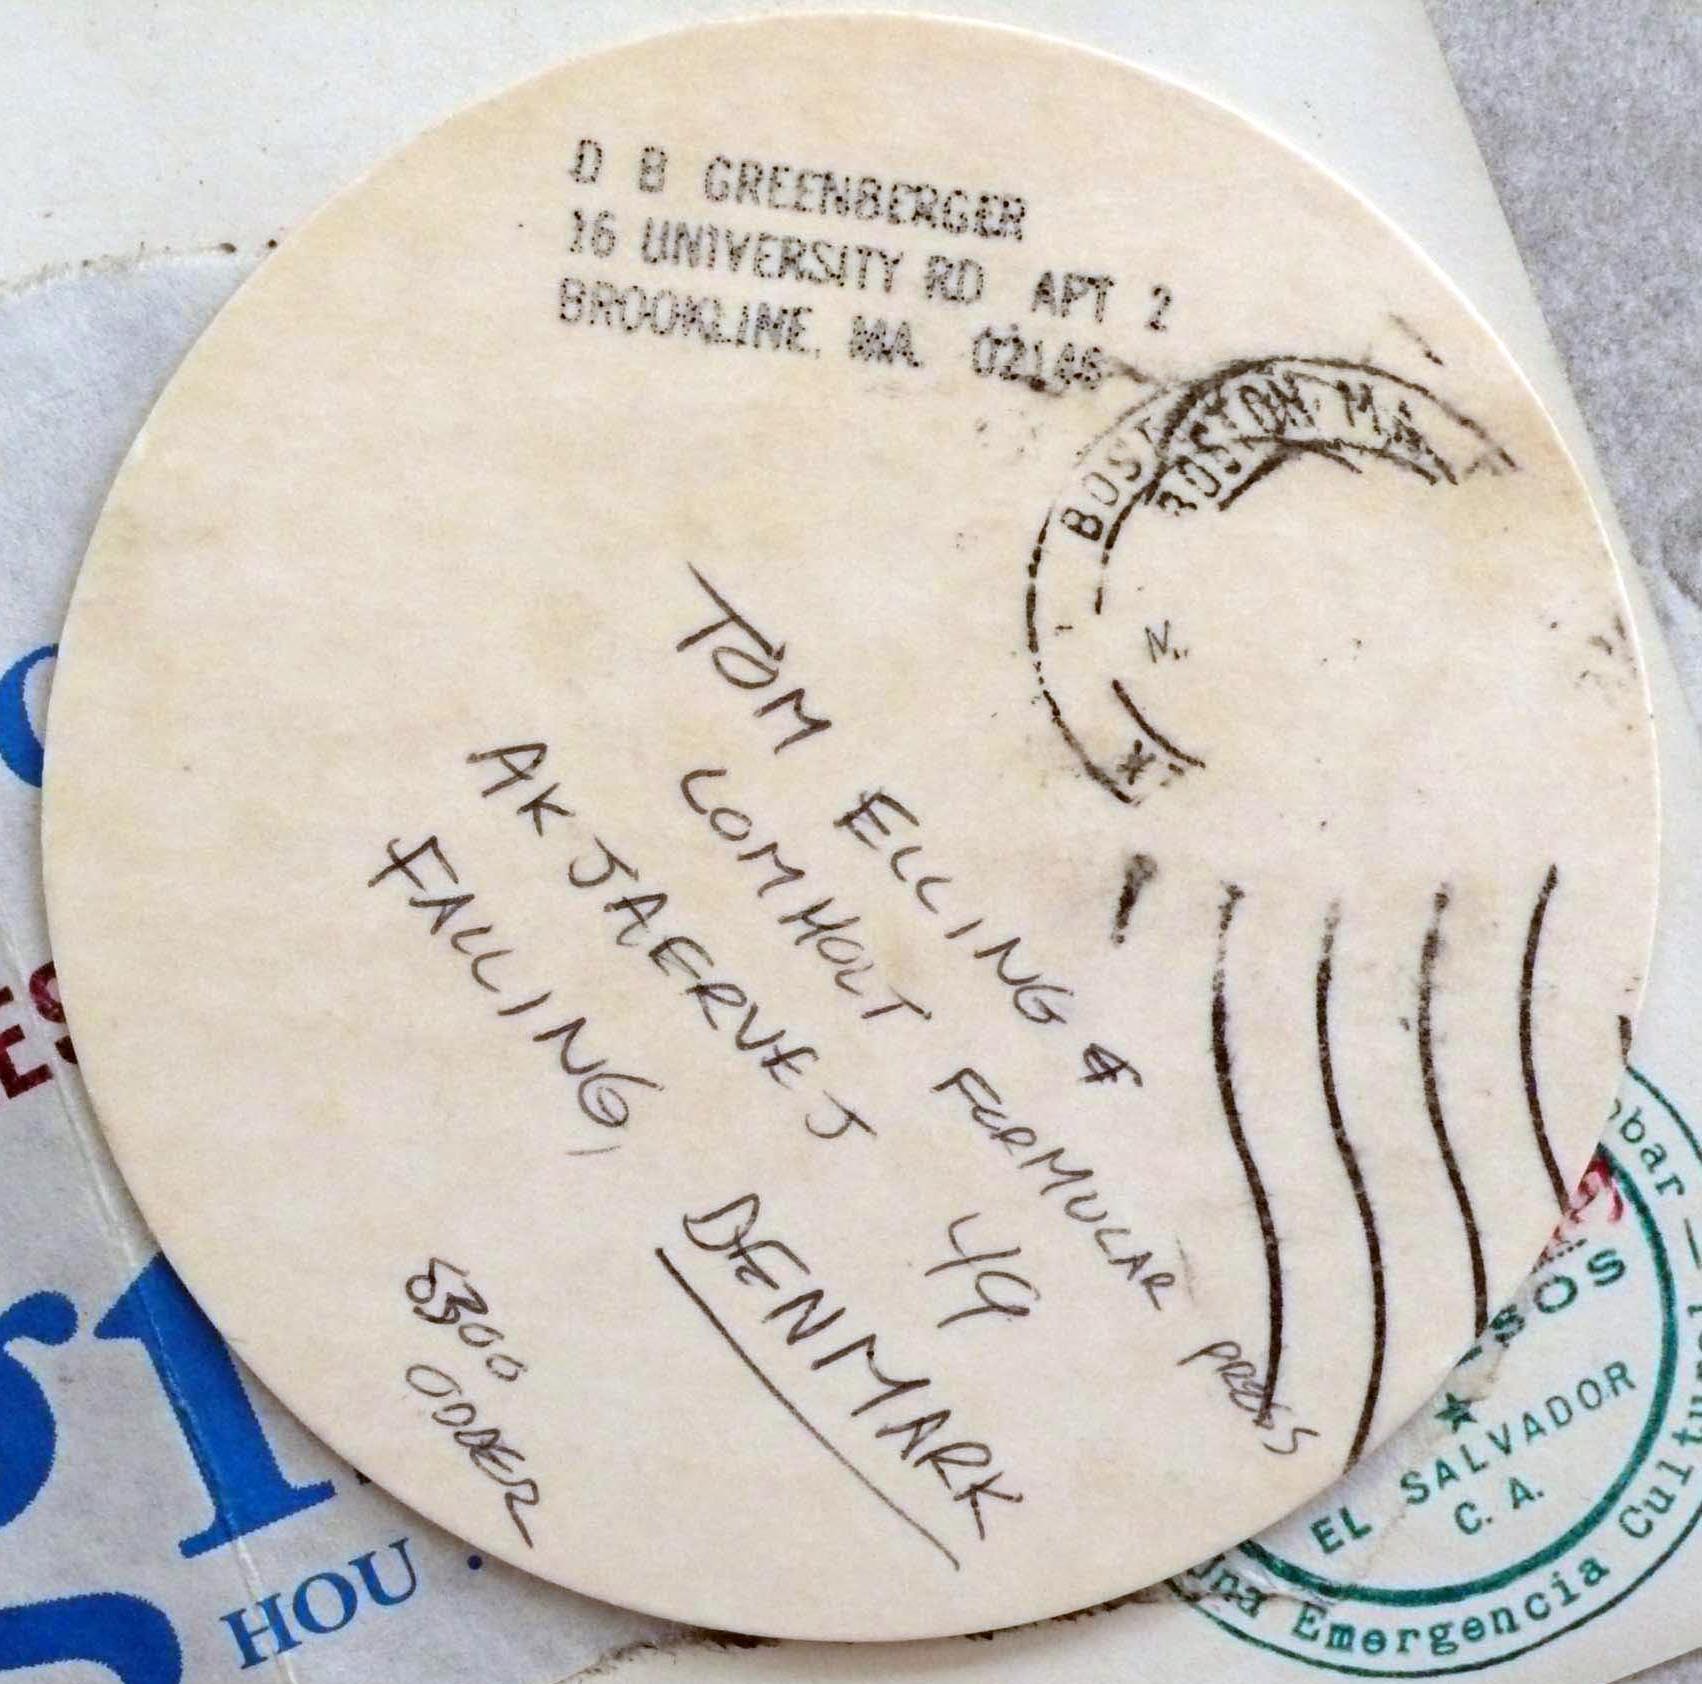 D B GREENBERGER
16 UNIVERSITY RD APT 2
BROOKLINE, MA. 02146
BOSTON, MA
TOM ELLING &
LOMHOLT FORMULAR PRESS
AKJAERVEJ 49
FALLING,
DENMARK
8300
ODDER
ES
HOU .
obar
SOS
EL SALVADOR
C. A.
una Emergencia Cultural